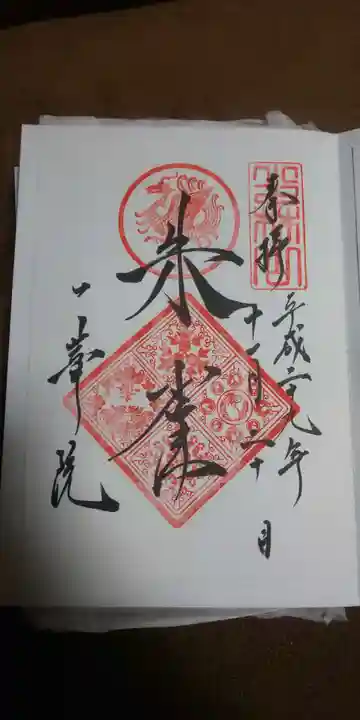 奉拝
平成二九年
十一月二十日
朱雀
一峯院